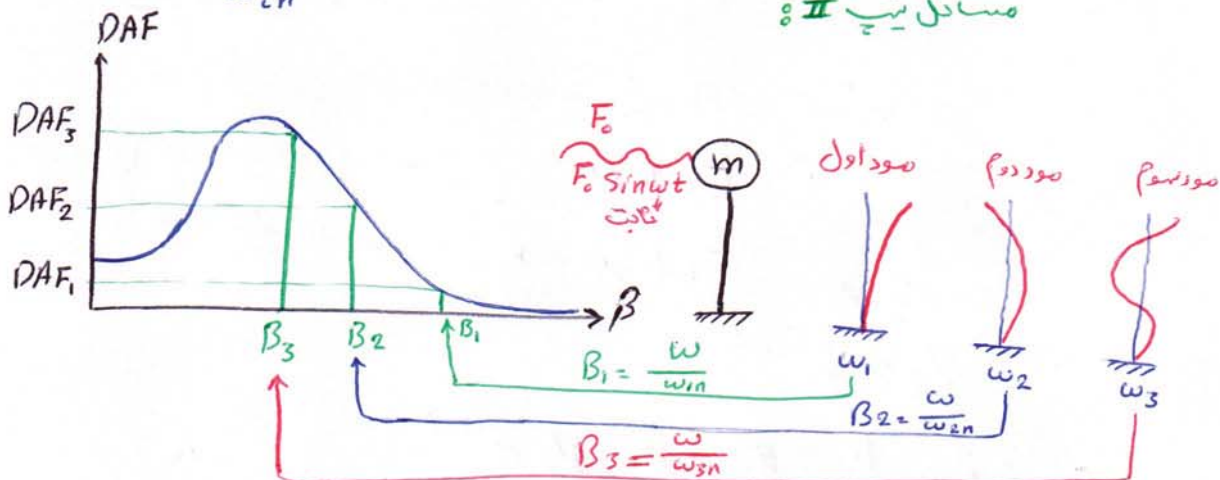 مسائل تیپ II :
2n
DAF
DAF₃
DAF₂
DAF₁
β
B₃
B₂
B₁
F₀
F₀ Sinωt
ثابت
m
مود اول
مود دوم
مود سوم
ω₁
ω₂
ω₃
B₁ = ω/ω₁n
B₂ = ω/ω₂n
B₃ = ω/ω₃n